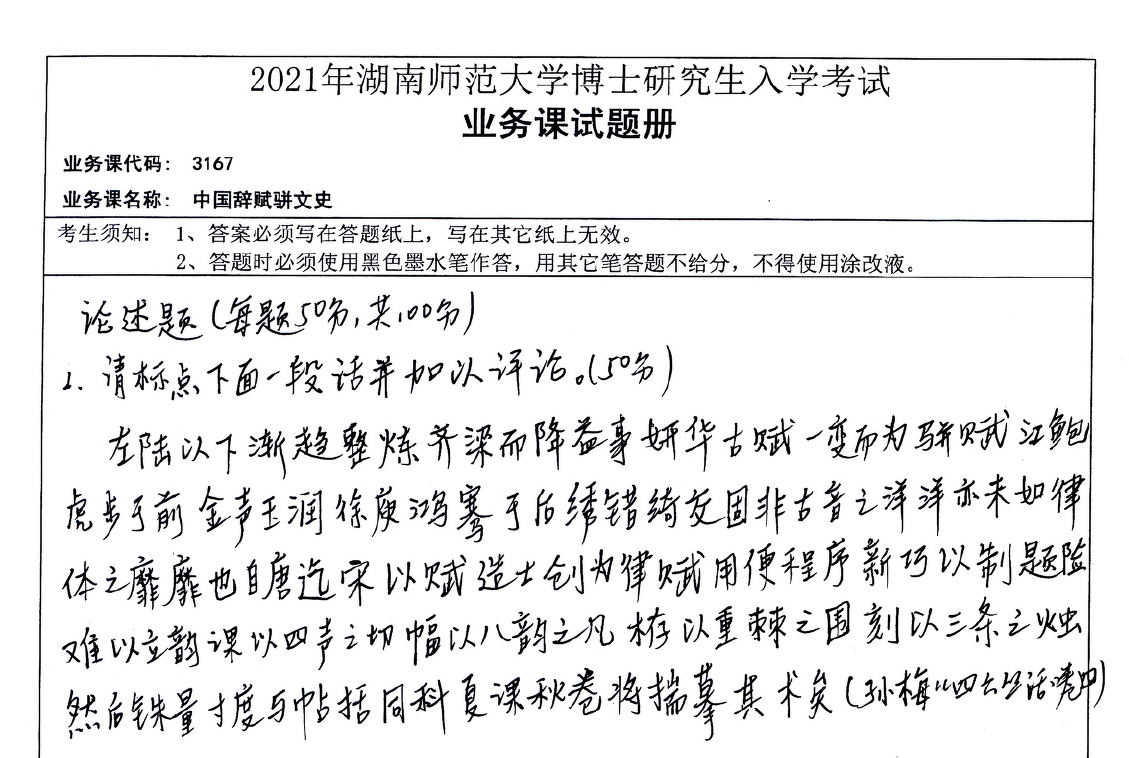 2021年湖南师范大学博士研究生入学考试
业务课试题册
业务课代码: 3167
业务课名称: 中国辞赋骈文史
考生须知: 1、答案必须写在答题纸上，写在其它纸上无效。
2、答题时必须使用黑色墨水笔作答，用其它笔答题不给分，不得使用涂改液。
论述题(每题50分,共100分)
1. 请标点下面一段话并加以评论。(50分)
左陆以下渐趋整炼齐梁而降益事妍华古赋一变而为骈赋江鲍
虎步于前金声玉润徐庾鸿骞于后绣错绮交固非古音之洋洋亦未如律
体之靡靡也自唐迄宋以赋造士创为律赋用便程序新巧以制题险
难以立韵课以四声之切幅以八韵之凡栫以重棘之围刻以三条之烛
然后铢量寸度与帖括同科夏课秋卷将揣摹其术矣(孙梅《四六丛话》卷四)